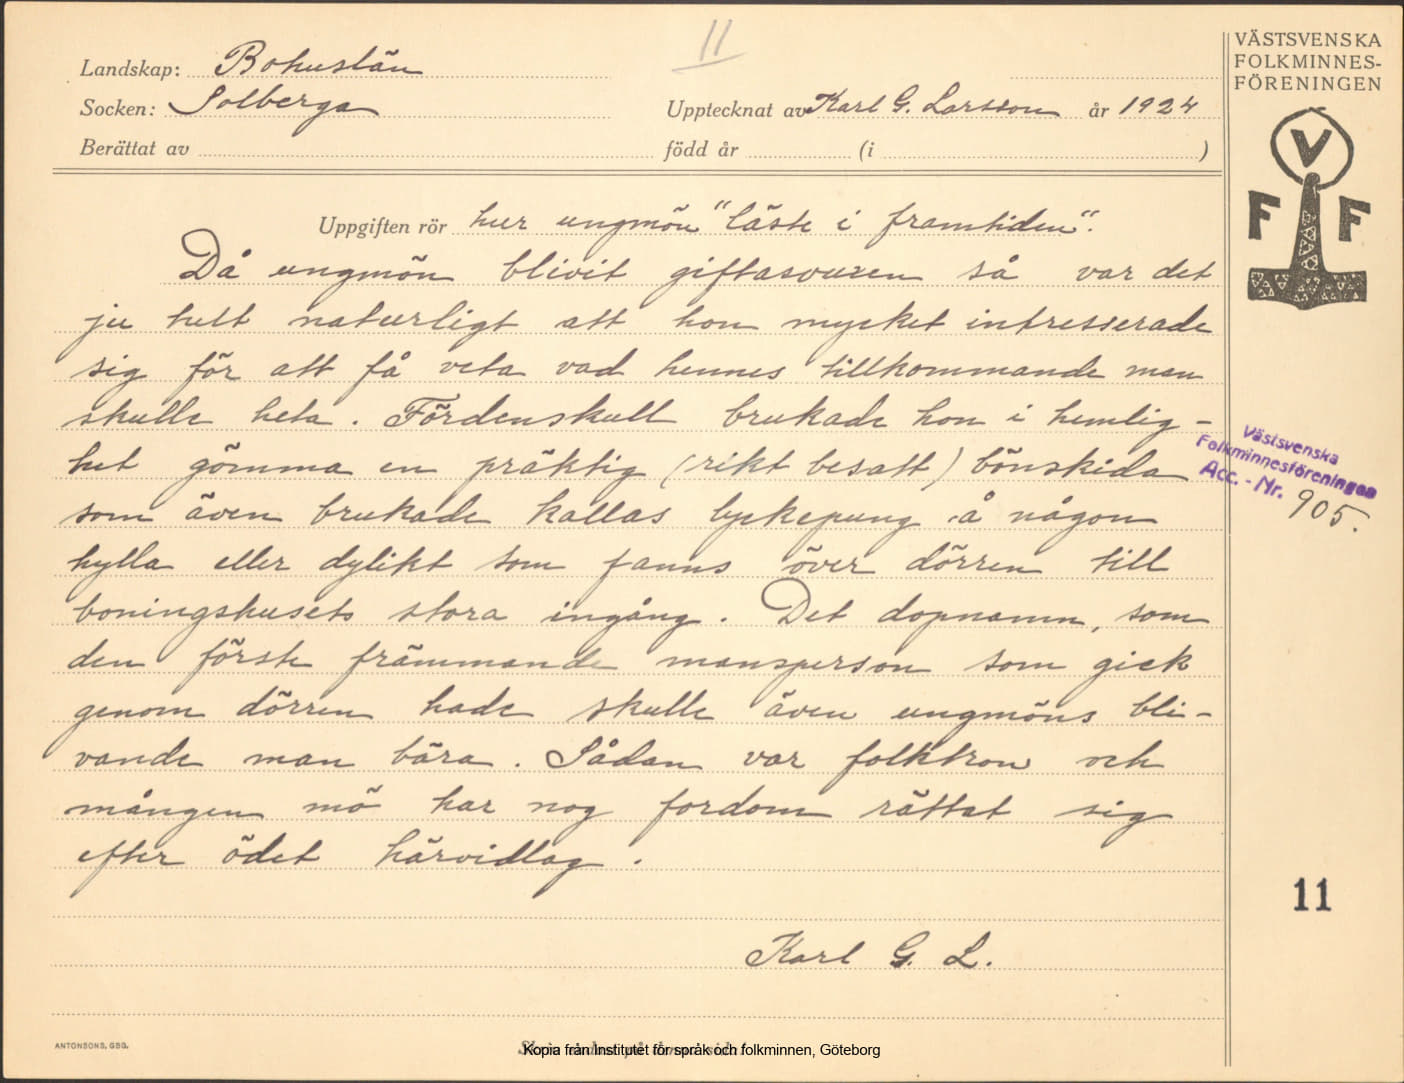 11
Landskap: Bohuslän
Socken: Solberga
Upptecknat av Karl G. Larsson år 1924
Berättat av född år (i )
VÄSTSVENSKA
FOLKMINNES-
FÖRENINGEN
V
F F
Uppgiften rör hur ungmön "läste i framtiden".
Då ungmön blivit giftasvuxen så var det
ju helt naturligt att hon mycket intresserade
sig för att få veta vad hennes tillkommande man
skulle heta. Fördenskull brukade hon i hemlig-
het gömma en präktig (rikt besatt) bönskida
som även brukade kallas lyckepung å någon
hylla eller dylikt som fanns över dörren till
boningshusets stora ingång. Det dopnamn, som
den förste främmande mansperson som gick
genom dörren hade skulle även ungmöns bli-
vande man bära. Sådan var folktron och
mången mö har nog fordom rättat sig
efter ödet härvidlag.
Karl G. L.
Västsvenska
Folkminnesföreningen
Acc. - Nr. 905.
11
ANTONSONS, GBG.
Kopia från Institutet för språk och folkminnen, Göteborg